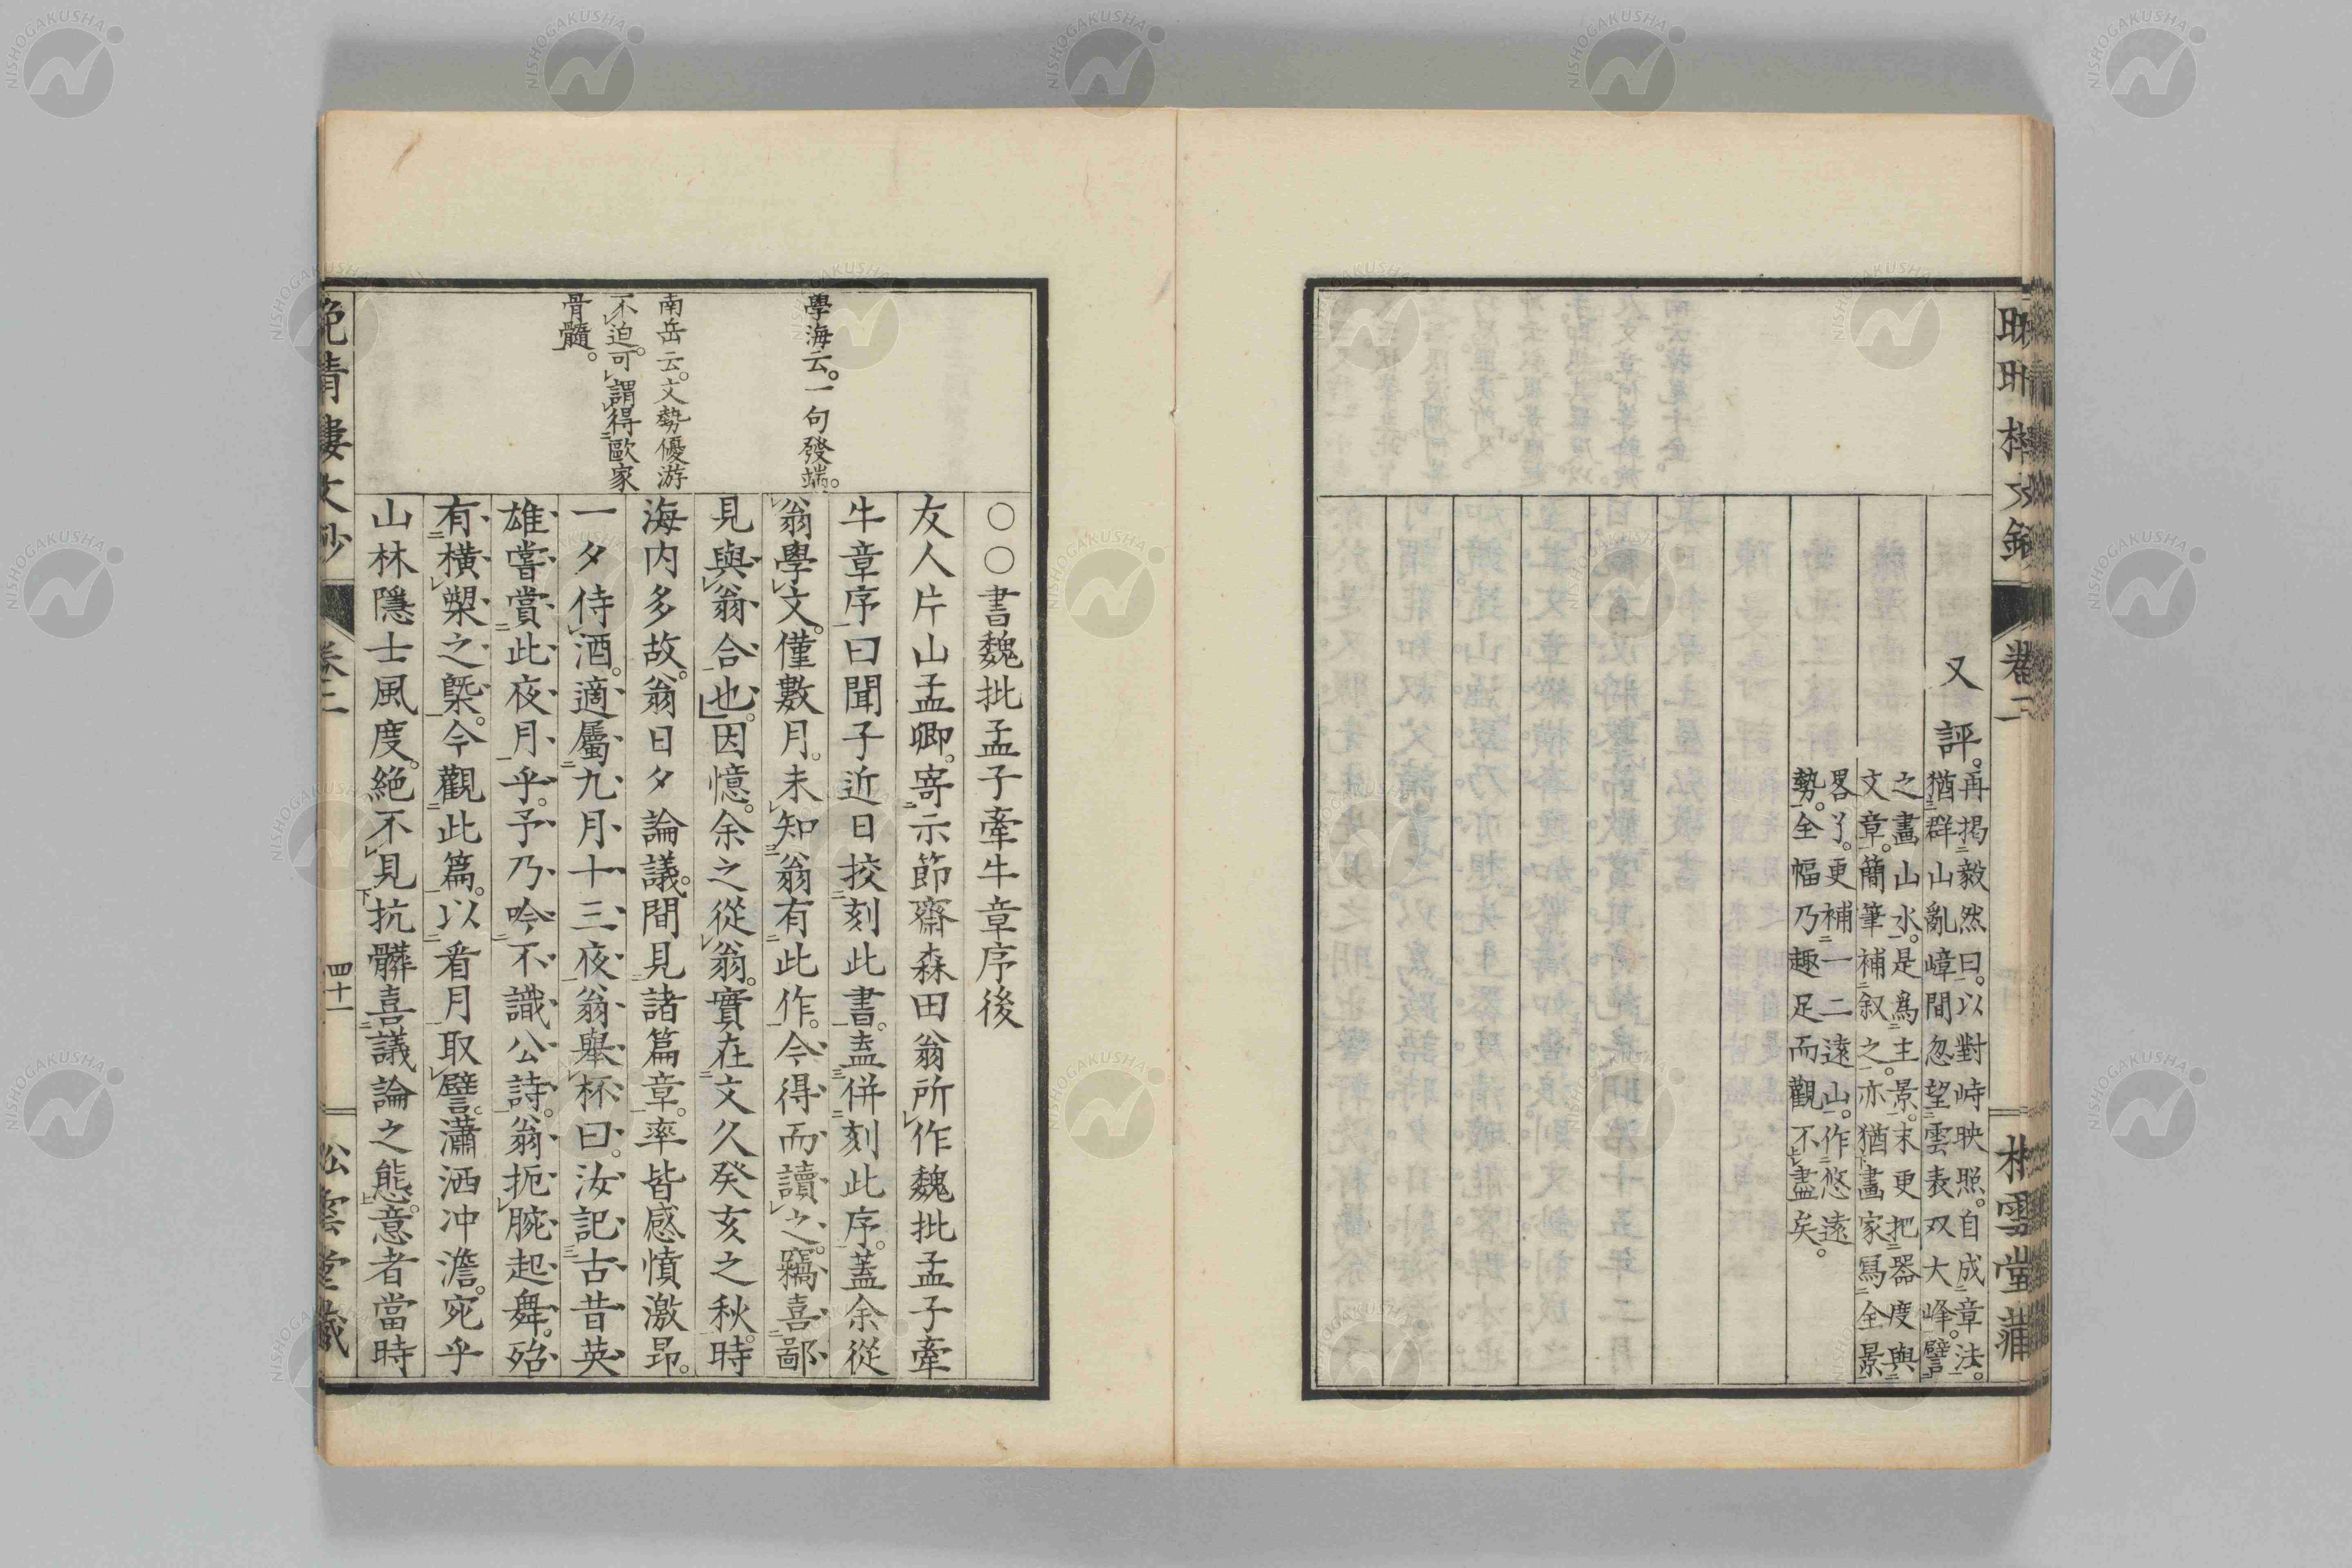 又評。再揭毅然曰。以對峙映照。自成章法。
猶群山亂嶂間忽望雲表双大峰。譬
之畫山水。是爲主景。末更把器度與
文章。簡筆補叙之。亦猶畫家寫全景
畧了。更補一二遠山。作悠遠
勢。全幅乃趣足而觀不盡矣。
卷二
學海云。一句發端。
南岳云。文勢優游
不迫。可謂得歐家
骨髓。
〇〇書魏批孟子牽牛章序後
友人片山孟卿。寄示節齋森田翁所作魏批孟子牽
牛章序曰聞子近日挍刻此書。盍併刻此序。蓋余從
翁學文。僅數月。未知翁有此作。今得而讀之。竊喜鄙
見與翁合也。因憶。余之從翁。實在文久癸亥之秋。時
海内多故。翁日夕論議。間見諸篇章。率皆感憤激昂。
一夕侍酒。適屬九月十三夜。翁舉杯曰。汝記古昔英
雄嘗賞此夜月乎。予乃吟不識公詩。翁扼腕起舞。殆
有横槊之槩。今觀此篇。以看月取譬。瀟洒冲澹。宛乎
山林隱士風度。絶不見抗髒喜議論之態。意者當時
晩晴樓文鈔
卷二
四十一
松雲堂藏